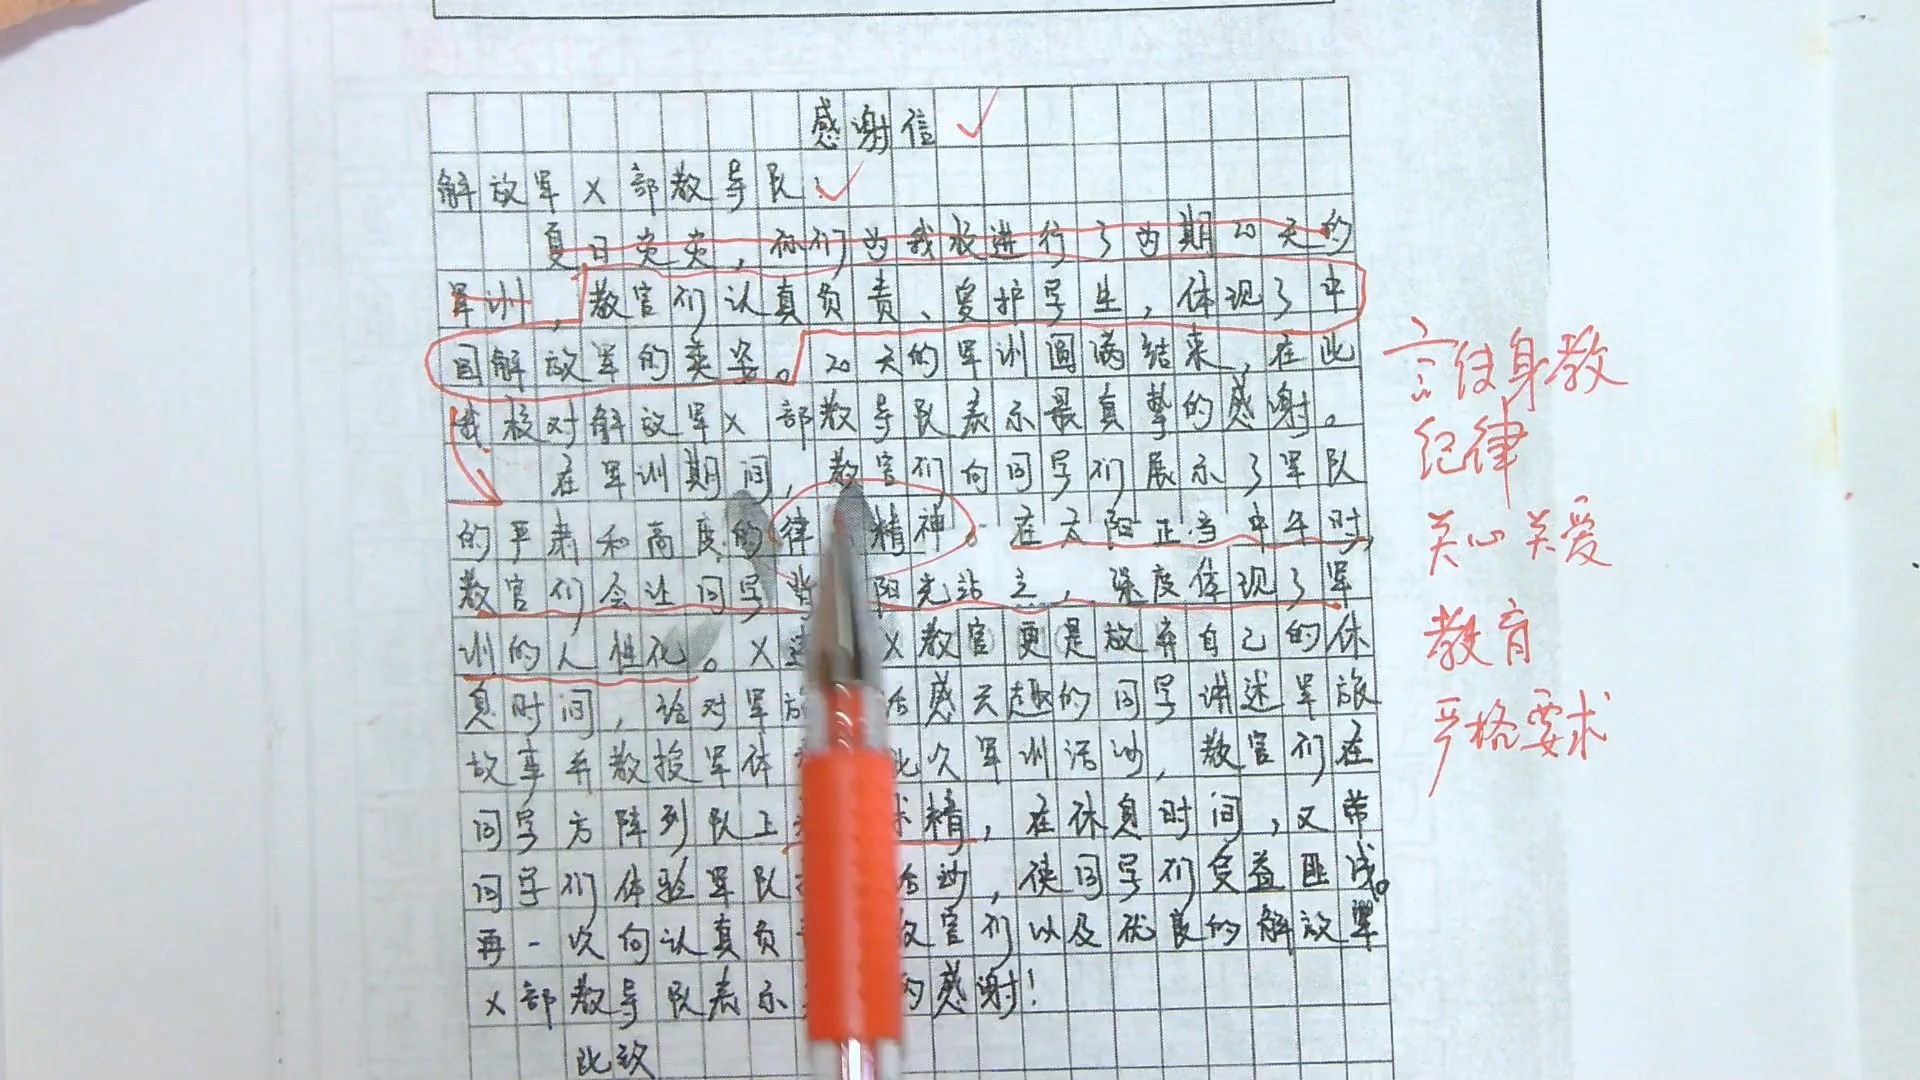 感谢信
解放军X部教导队:
夏日炎炎，你们为我校进行了为期20天的
军训，教官们认真负责、爱护学生，体现了中
国解放军的英姿。20天的军训圆满结束，在此
我校对解放军X部教导队表示最真挚的感谢。
在军训期间，教官们向同学们展示了军队
的严肃和高度的律 精神。在太阳正当中午时，
教官们会让同学背 阳光站立，深度体现了军
训的人性化。X X教官更是放弃自己的休
息时间，给对军旅 活感兴趣的同学讲述军旅
故事并教授军体 此次军训活动，教官们在
同学方阵列队上 求精，在休息时间，又带
同学们体验军队 活动，使同学们受益匪浅。
再一次向认真负 教官们以及优良的解放军
X部教导队表示 的感谢！
此致
言传身教
纪律
关心关爱
教育
严格要求